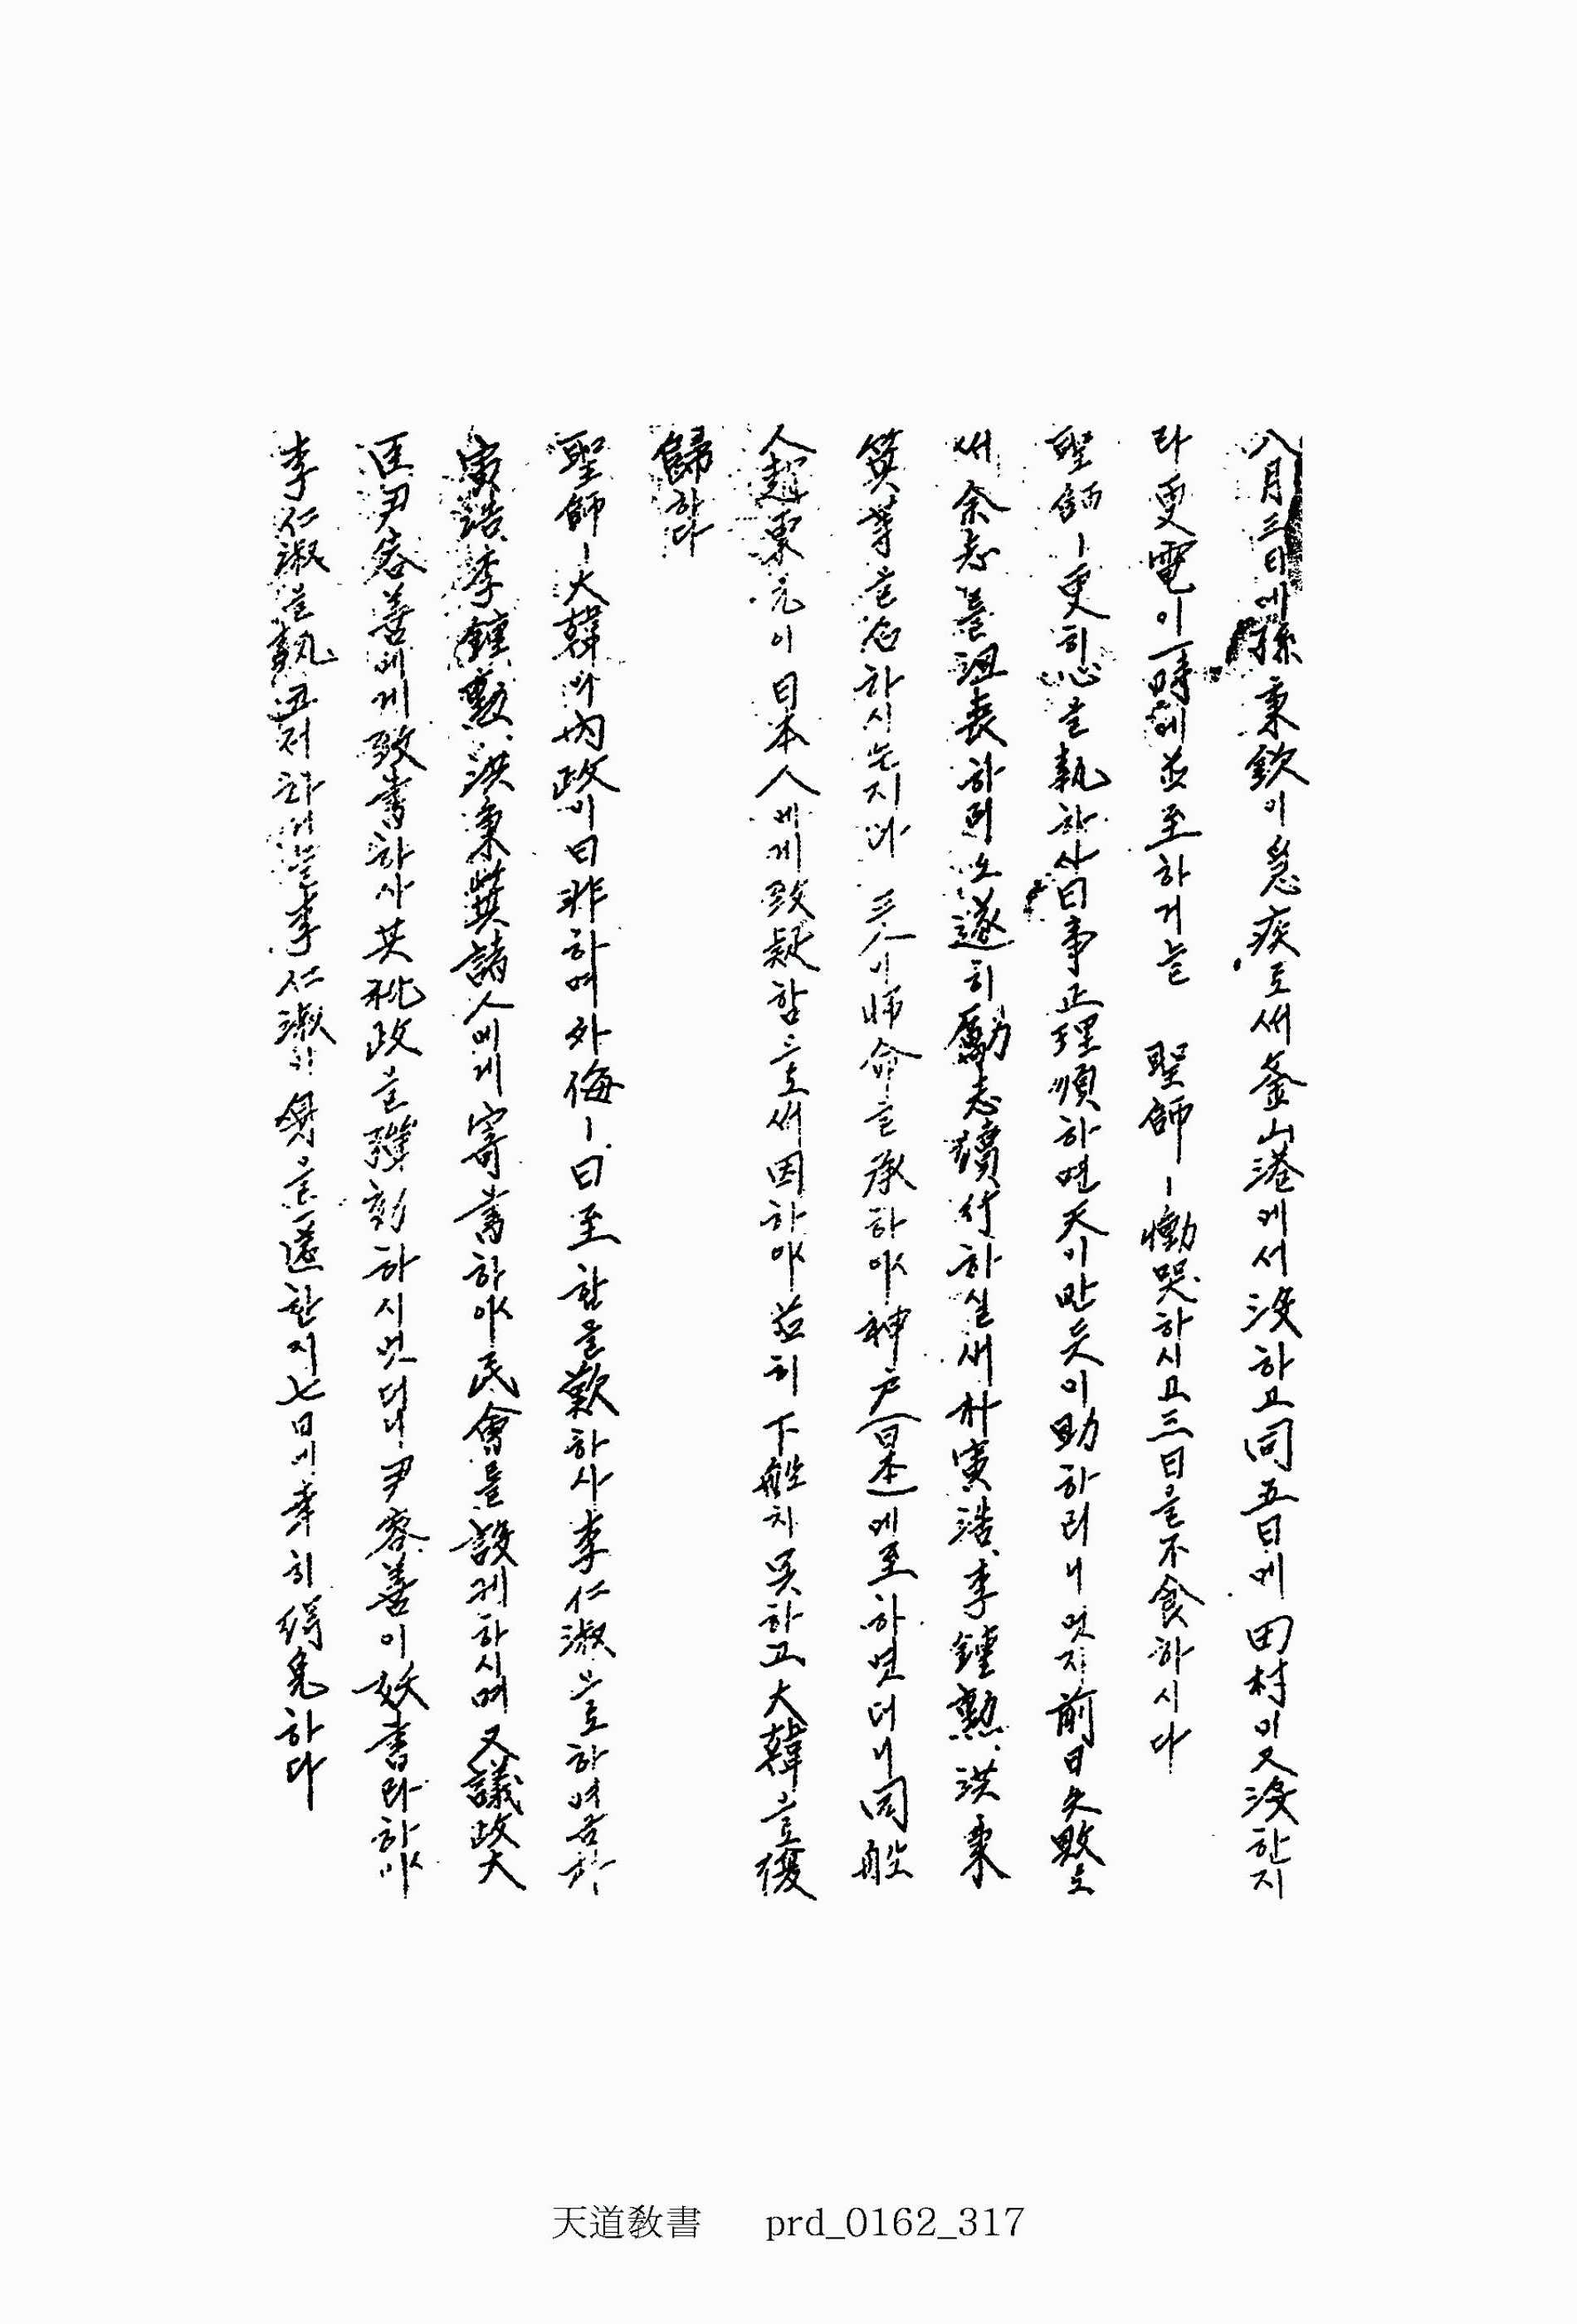 八月三日에孫秉欽이急疾로써釜山港에서沒하고同五日에田村이又沒한지
라更電이一時에並至하거늘 聖師ㅣ慟哭하시고三日을不食하시다
聖師ㅣ更히心을執하사曰事正理順하면天이반듯이助하리니엇지前日失敗로
써余志를沮喪하리오遂히勵志續行하실새朴寅浩、李鍾勳、洪秉
箕等을召하시는지라 三人이師命을承하야神戶(日本)에至하엿더니同船
人趙東元이日本人에게致疑함으로써因하야玆히下船치못하고大韓으로復
歸하다
聖師ㅣ大韓의內政이日非하며外侮ㅣ日至함을歎하사李仁淑으로하여금朴
寅浩、李鍾勳、洪秉箕諸人에게寄書하야民會를設케하시며又議政大
臣尹容善에게致書하사其秕政을彈劾하시엇더니尹容善이妖書라하야
李仁淑을執고저하거늘李仁淑이身을匿한지七日에幸히得免하다
天道敎書 prd_0162_317